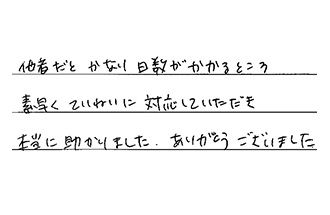 他者だと かなり 日数がかかるところ
素早く ていねいに 対応していただき
本当に 助かりました. ありがとう ございました